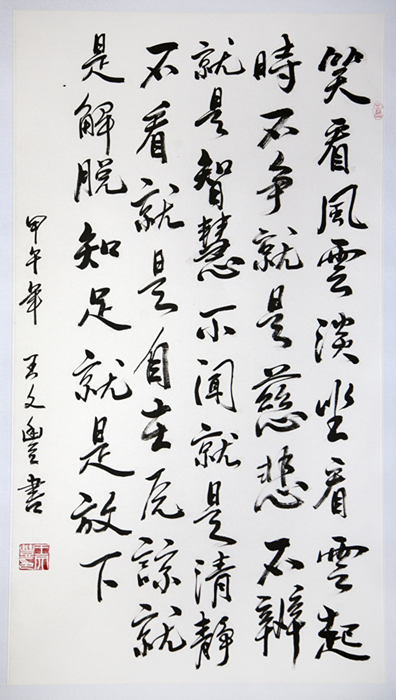 笑看風雲淡坐看雲起
時不争就是慈悲不辨
就是智慧不闻就是清靜
不看就是自在原諒就
是解脱知足就是放下
甲午年 王文豐書